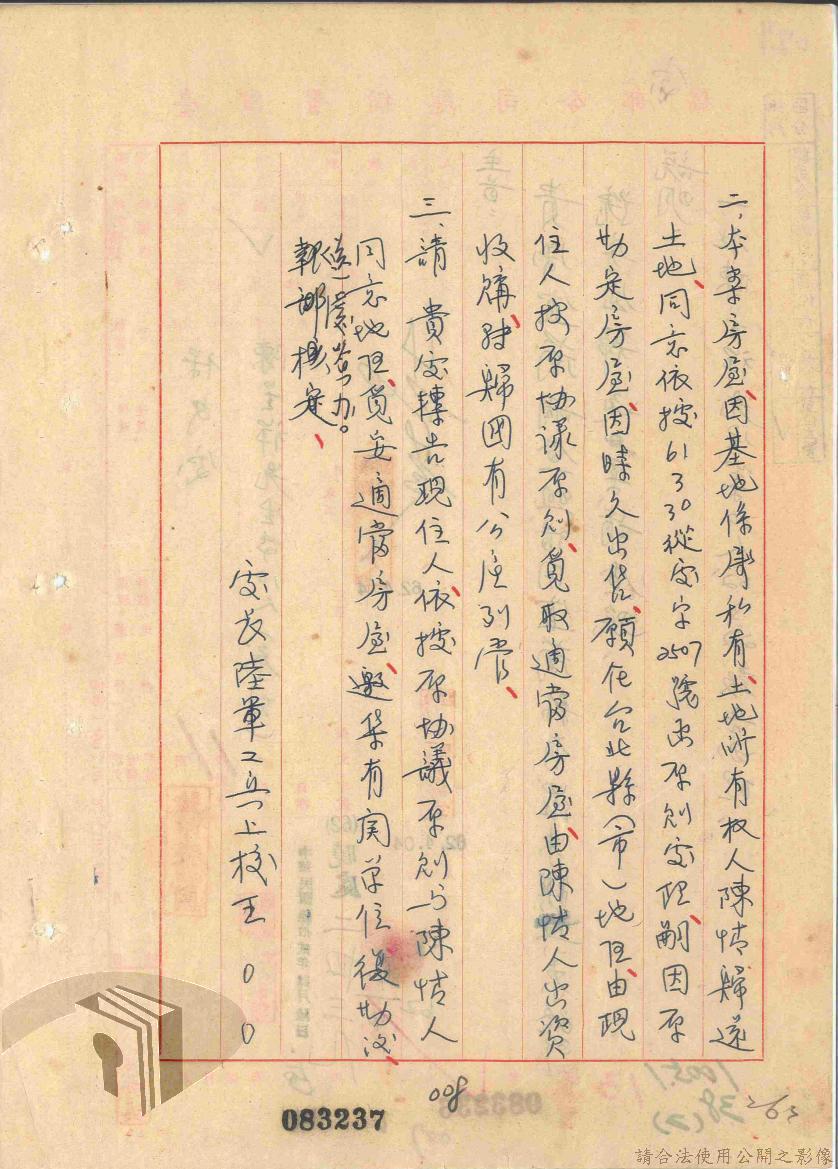 二、本案房屋、因基地係屬私有、土地所有权人陳情歸還
土地、同意依據61 3 30 從處字2507號函原則處理、嗣因原
勘定房屋、因時久出售、願在台北縣(市)地区、由現
住人按原协議原则、覓取適當房屋、由陳情人出資
收購、歸國有公產列管、
三、請 貴處轉告現住人、依據原协議原则与陳情人
同意地区、覓妥適當房屋、邀集有関单位復勘後、
報部核定、
處長陸軍工兵上校王00
008
083237
263
38(2)
請合法使用公開之影像